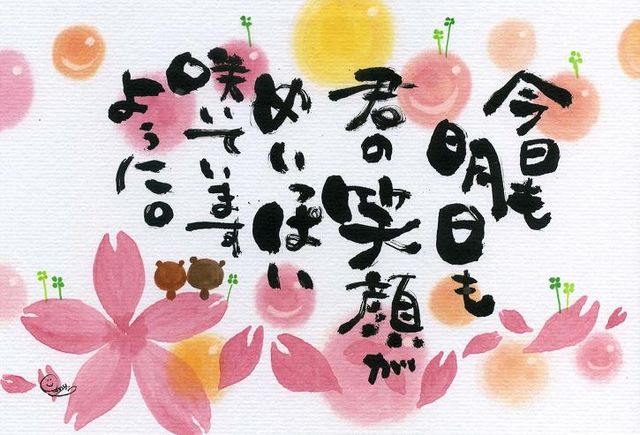 今日も
明日も
君の笑顔が
めいっぱい
咲いています
ように。